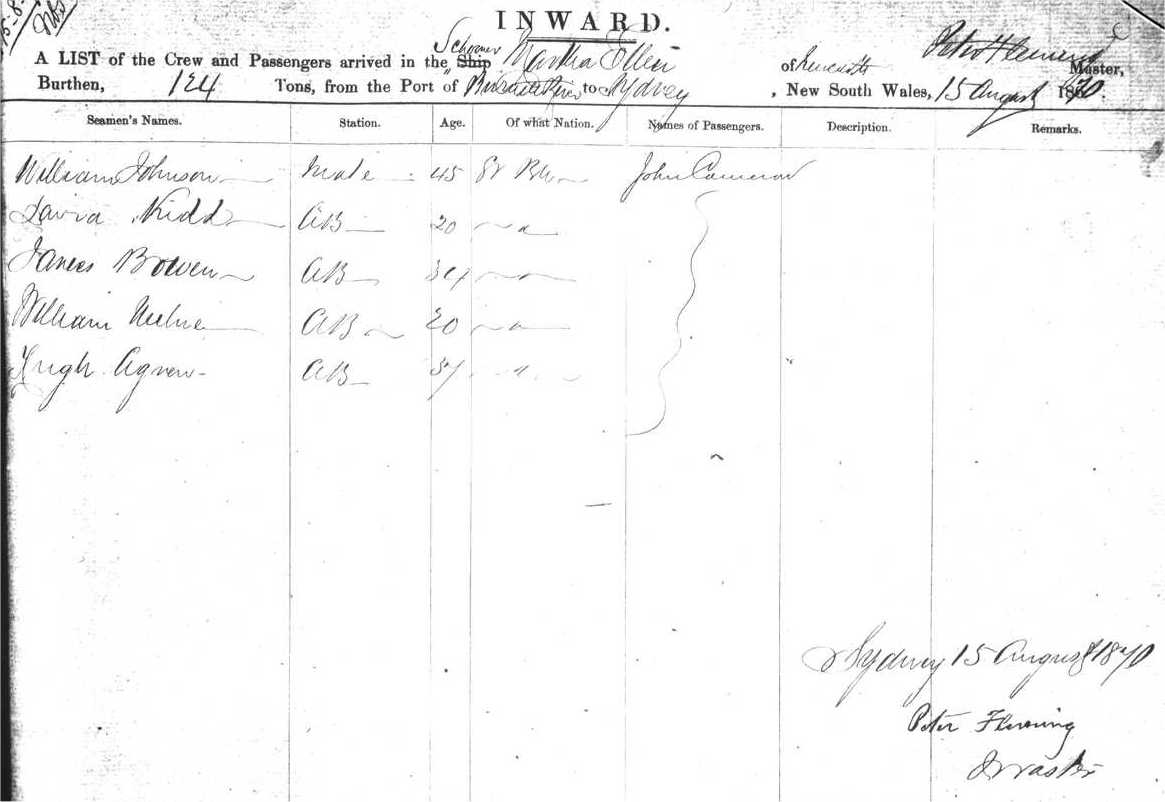 15-8-
INWARD.
Schooner
A LIST of the Crew and Passengers arrived in the Ship Martha Ellen of Peter Fleming Master,
Burthen, 124 Tons, from the Port of River to Sydney, New South Wales, 15 August 1870.
Seamen's Names. Station. Age. Of what Nation. Names of Passengers. Description. Remarks.
William Johnson Mate 45 Gt Bn John Cameron
Kidd AB 20
James Bowen AB
William AB 20
Hugh Agnew AB
Sydney 15 August 1870
Peter Fleming
Master